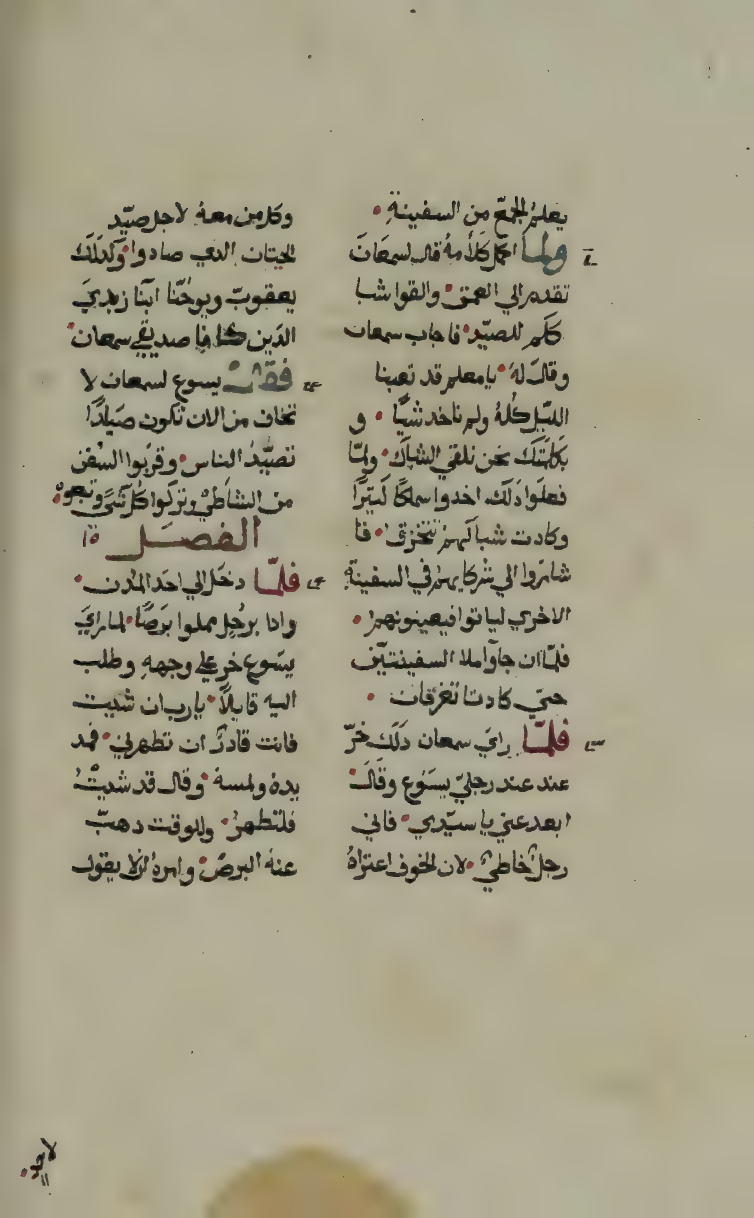 يعلم الجمع من السفينة
ولما اكمل كلامه قال لسمعان
تقدم الي العمق والقوا شبا
كلم للصيد فاجاب سمعان
وقال له يا معلم قد تعبنا
الليل كله ولم ناخد شيًا و
بكلمتك نحن نلقي الشباك ولمّا
فعلوا دلك اخدوا سمكًا كتيرًا
وكادت شباكهم تتخرق فا
شاروا الي شركايهم في السفينة
الاخري لياتوا فيعينونهم
فلمّا ان جاوا ملا السفينتين
حتي كادتا تغرقان
فلمّا راي سمعان دلك خرّ
عند عند رجلي يسوع وقال
ابعد عني يا سيدي فاني
رجل خاطي لان الخوف اعتراه
وكل من معه لاجل صيد
الحيتان الدي صادوا وكدلك
يعقوب ويوحنا ابنا زبدي
الدين كانا صديقي سمعان
فقال يسوع لسمعان لا
تخاف من الان تكون صيادًا
تصيد الناس وقربوا السفن
من الشاطي وتركوا كل شي وتبعوه
الفصل ١٥
فلمّا دخل الي احد المدن
وادا برجل مملوا برصًا لما راي
يسوع خر علي وجهه وطلب
اليه قايلًا يا رب ان شيت
فانت قادر ان تطهرني فمد
يده ولمسه وقال قد شيت
فلتطهر وللوقت دهب
عنه البرص وامره الا يقول
لاحد